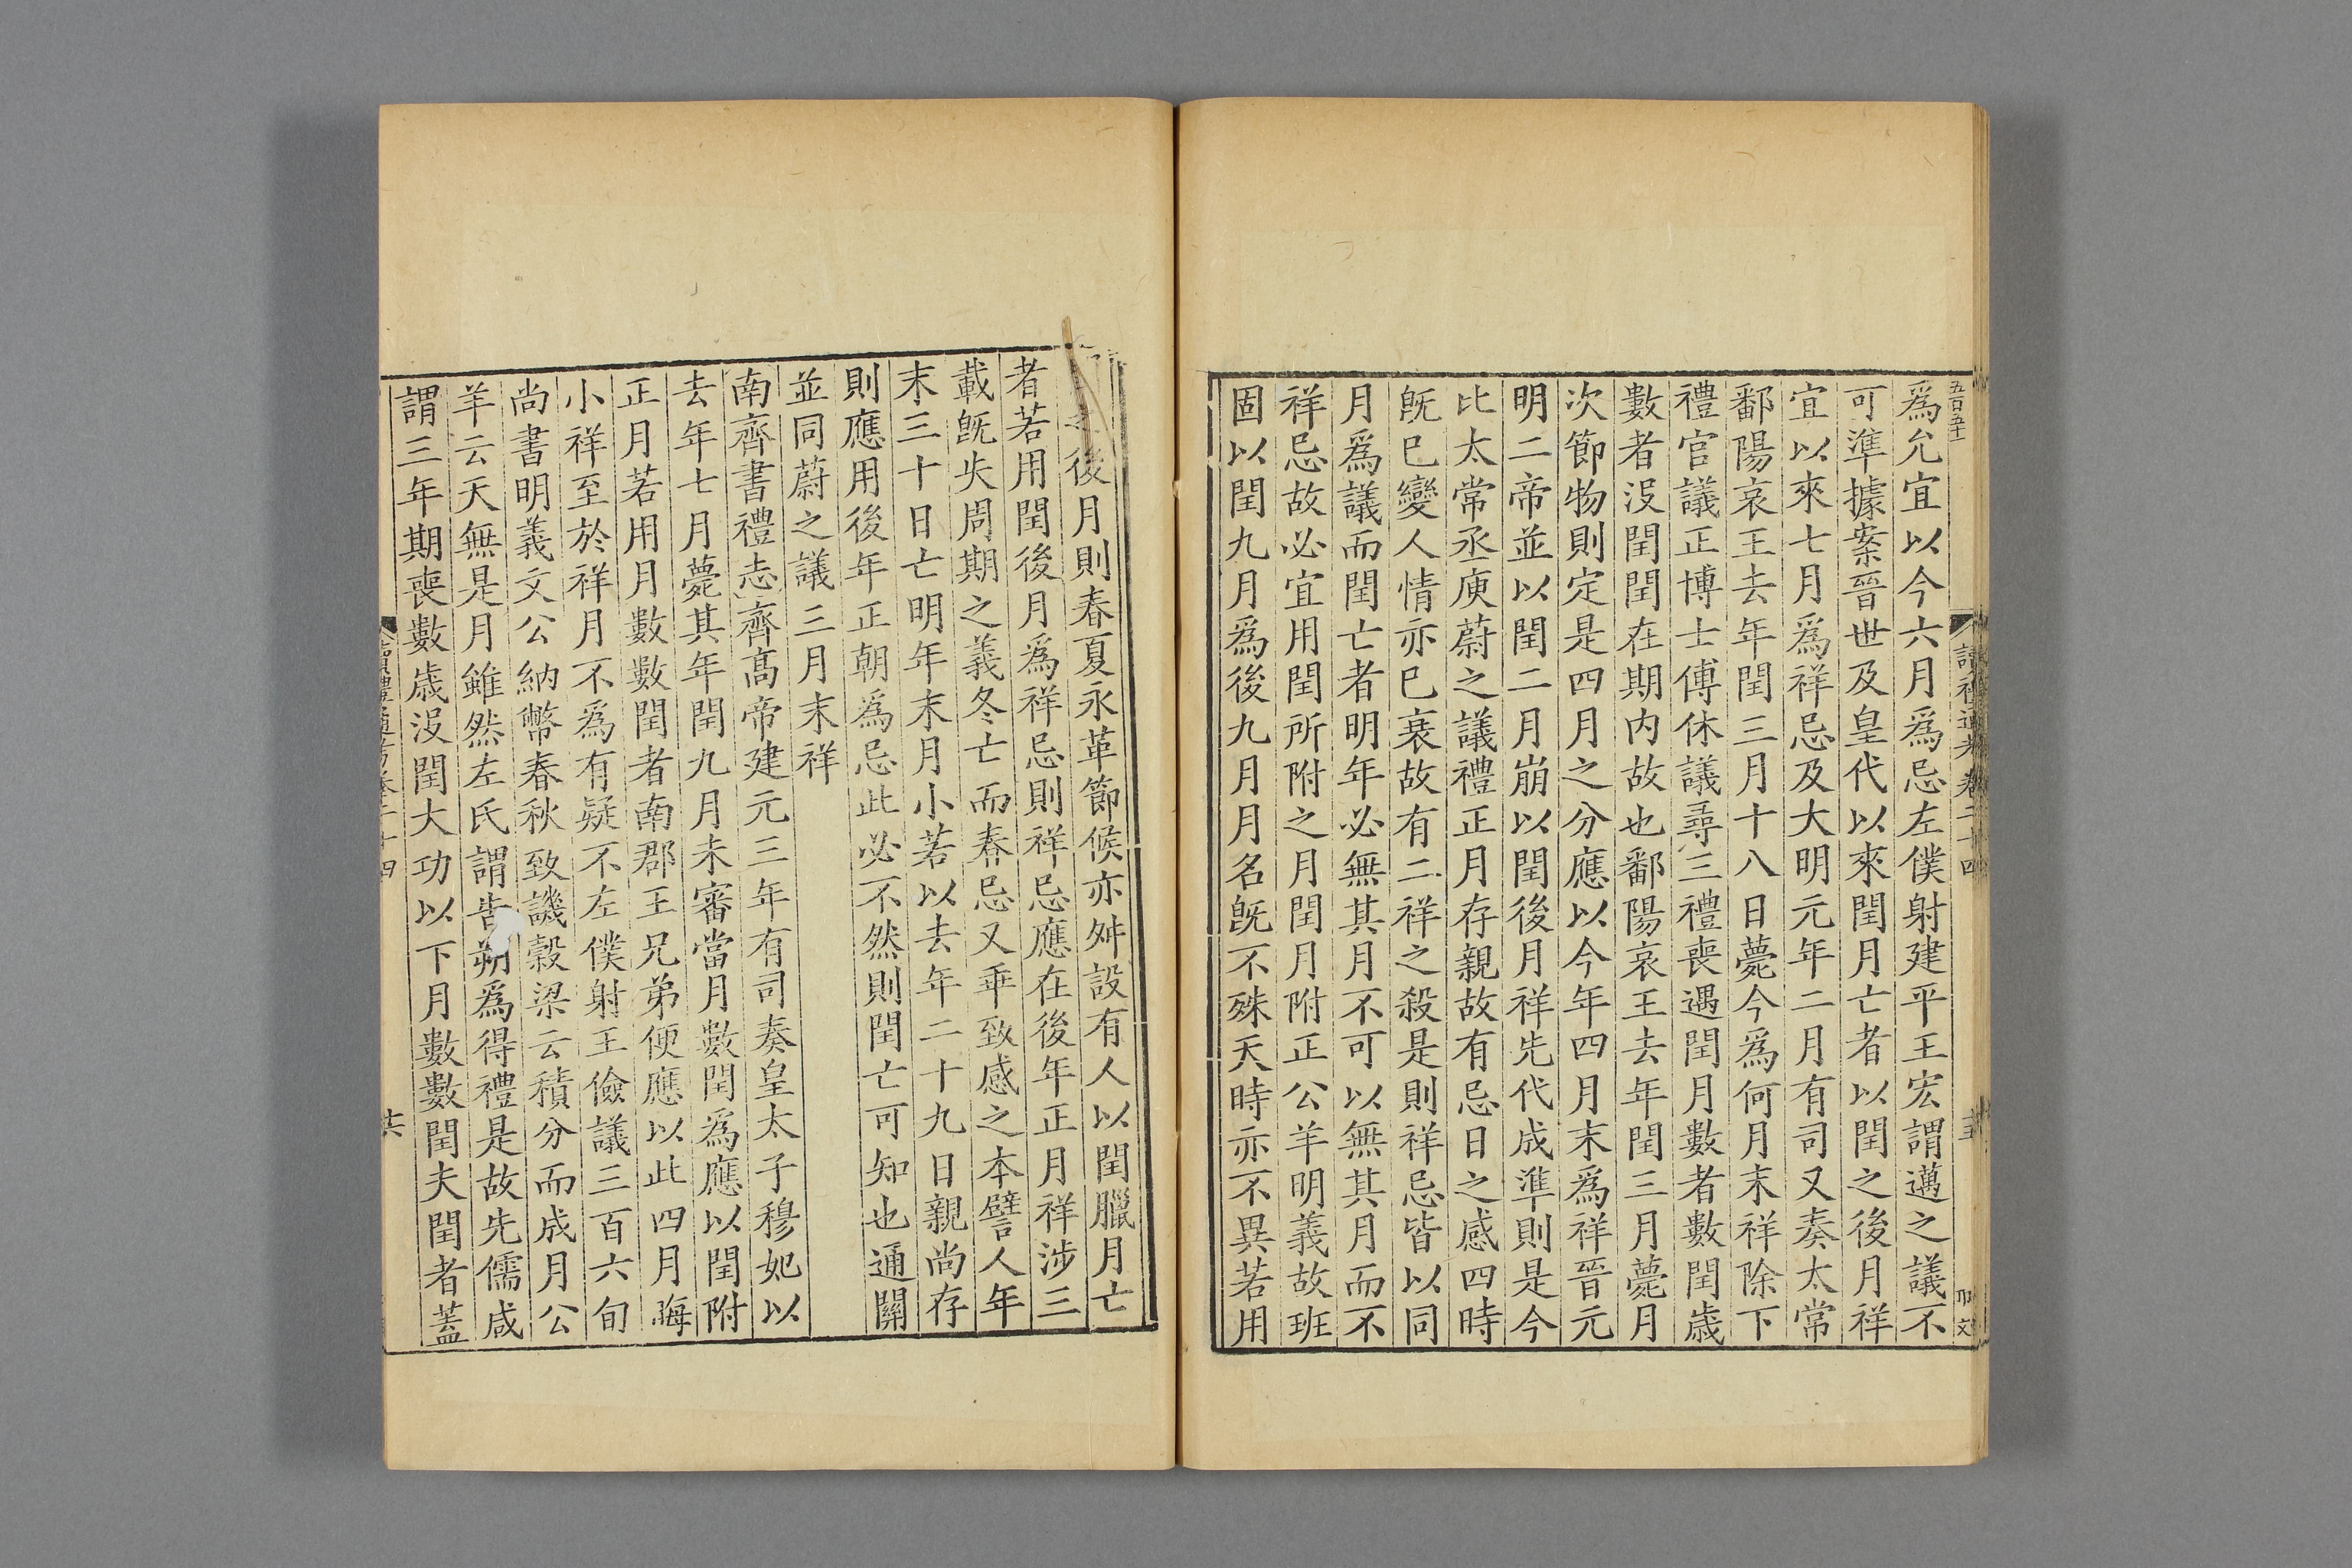 五百五十
讀禮通考卷二十四
為允宜以今六月為忌左僕射建平王宏謂邁之議不
可準據案晉世及皇代以來閏月亡者以閏之後月祥
宜以來七月為祥忌及大明元年二月有司又奏太常
鄱陽哀王去年閏三月十八日薨今為何月末祥除下
禮官議正博士傅休議尋三禮喪遇閏月數者數閏歲
數者沒閏閏在期內故也鄱陽哀王去年閏三月薨月
次節物則定是四月之分應以今年四月末為祥晉元
明二帝並以閏二月崩以閏後月祥先代成準則是今
比太常丞庾蔚之議禮正月存親故有忌日之感四時
旣已變人情亦已衰故有二祥之殺是則祥忌皆以同
月為議而閏亡者明年必無其月不可以無其月而不
祥忌故必宜用閏所附之月閏月附正公羊明義故班
固以閏九月為後九月月名旣不殊天時亦不異若用
後月則春夏永革節候亦舛設有人以閏臘月亡
者若用閏後月為祥忌則祥忌應在後年正月祥涉三
載旣失周期之義冬亡而春忌又乖致感之本譬人年
末三十日亡明年末月小若以去年二十九日親尚存
則應用後年正朝為忌此必不然則閏亡可知也通關
並同蔚之議三月末祥
南齊書禮志齊高帝建元三年有司奏皇太子穆妃以
去年七月薨其年閏九月未審當月數閏為應以閏附
正月若用月數數閏者南郡王兄弟便應以此四月晦
小祥至於祥月不為有疑不左僕射王儉議三百六旬
尚書明義文公納幣春秋致譏穀梁云積分而成月公
羊云天無是月雖然左氏謂告朔為得禮是故先儒咸
謂三年期喪數歲沒閏大功以下月數數閏夫閏者蓋